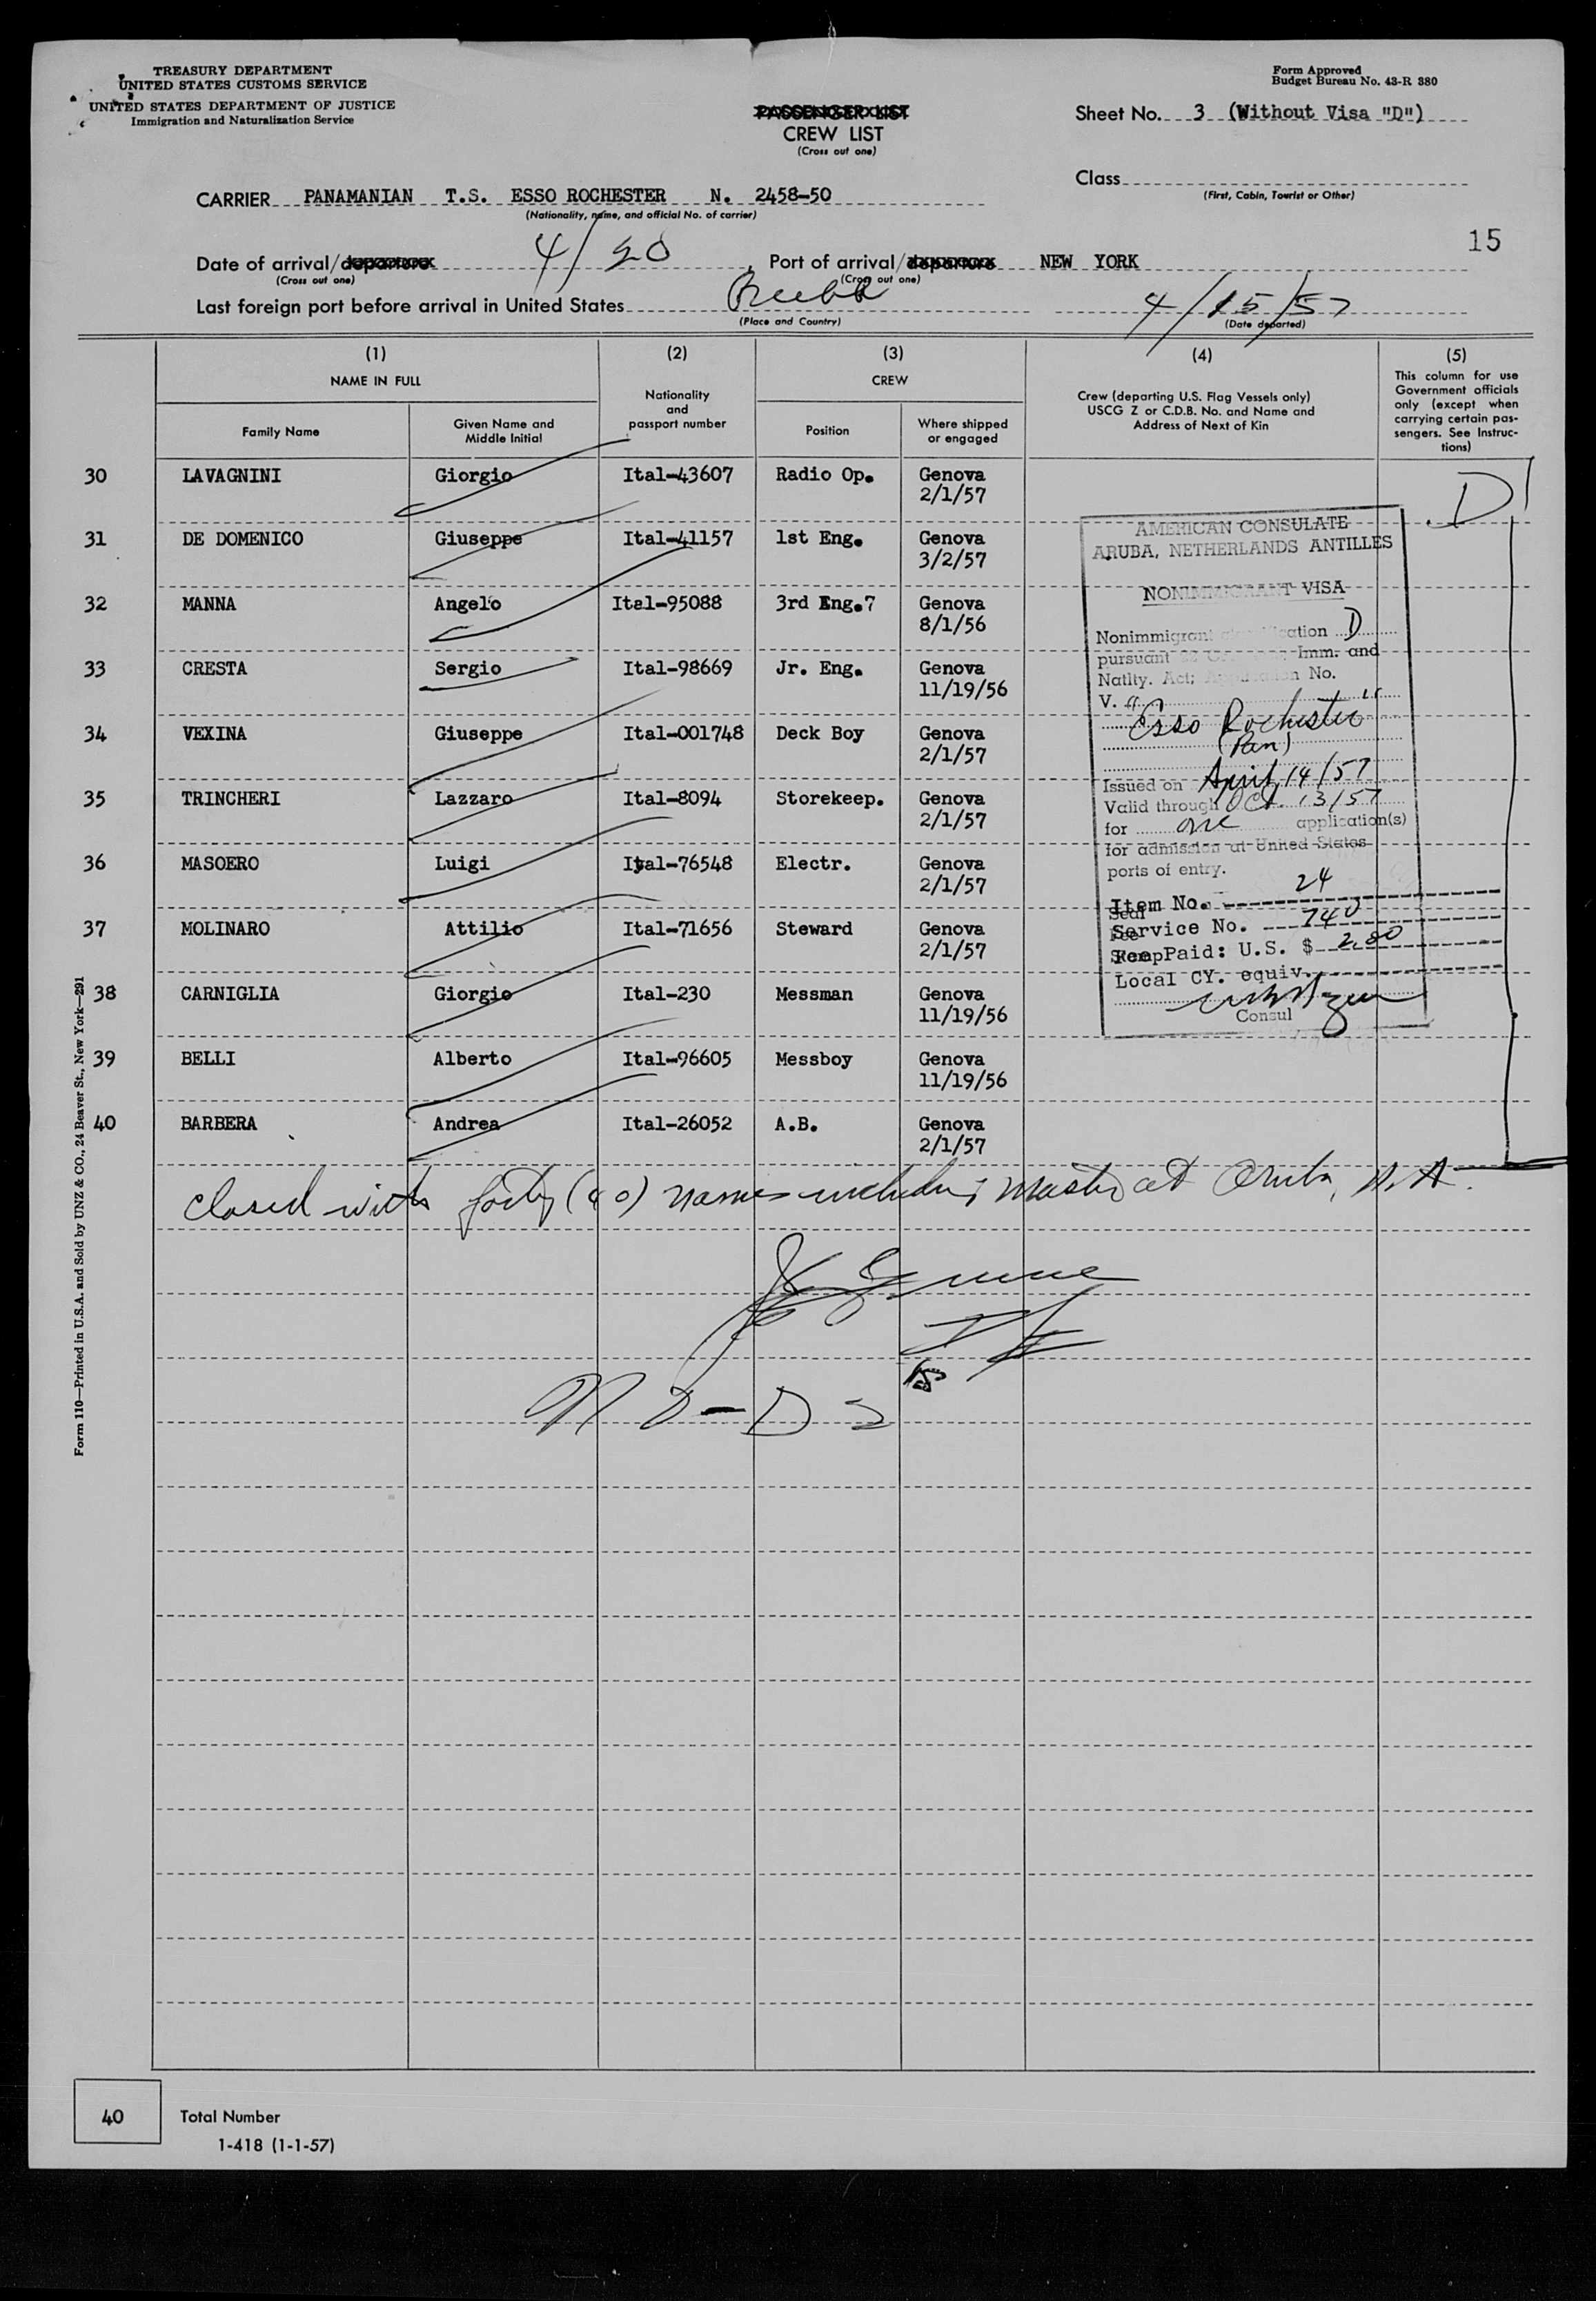 TREASURY DEPARTMENT
UNITED STATES CUSTOMS SERVICE
UNITED STATES DEPARTMENT OF JUSTICE
Immigration and Naturalization Service
Form Approved
Budget Bureau No. 43-R 380
PASSENGER LIST
CREW LIST
(Cross out one)
Sheet No. 3 (Without Visa "D")
Class
(First, Cabin, Tourist or Other)
CARRIER PANAMANIAN T.S. ESSO ROCHESTER N. 2458-50
(Nationality, name, and official No. of carrier)
15
Date of arrival/departure 4/20, Port of arrival/departure NEW YORK
(Cross out one) (Cross out one)
Last foreign port before arrival in United States 4/15/57
(Place and Country) (Date departed)
(1) (2) (3) (4) (5)
NAME IN FULL
Nationality and passport number
CREW
Crew (departing U.S. Flag Vessels only) USCG Z or C.D.B. No. and Name and Address of Next of Kin
This column for use Government officials only (except when carrying certain passengers. See Instructions)
Family Name Given Name and Middle Initial Position Where shipped or engaged
30 LAVAGNINI Giorgio Ital-43607 Radio Op. Genova 2/1/57 D
31 DE DOMENICO Giuseppe Ital-41157 1st Eng. Genova 3/2/57
32 MANNA Angelo Ital-95088 3rd Eng.7 Genova 8/1/56
33 CRESTA Sergio Ital-98669 Jr. Eng. Genova 11/19/56
34 VEXINA Giuseppe Ital-001748 Deck Boy Genova 2/1/57
35 TRINCHERI Lazzaro Ital-8094 Storekeep. Genova 2/1/57
36 MASOERO Luigi Ital-76548 Electr. Genova 2/1/57
37 MOLINARO Attilio Ital-71656 Steward Genova 2/1/57
38 CARNIGLIA Giorgio Ital-230 Messman Genova 11/19/56
39 BELLI Alberto Ital-96605 Messboy Genova 11/19/56
40 BARBERA Andrea Ital-26052 A.B. Genova 2/1/57
AMERICAN CONSULATE
ARUBA, NETHERLANDS ANTILLES
NONIMMIGRANT VISA
Nonimmigrant D
pursuant Imm. and
Natlty. Act; Application No.
V.
"Esso Rochester"
(Pan)
Issued on April 14/57
Valid through Oct. 13/57
for one application(s)
for admission at United States
ports of entry.
Item No. 24
Service No. 740
Fee Paid: U.S. $ 2.80
Local CY. equiv.
Consul
closed with forty (40) names including master at Aruba, N.A.
Form 110—Printed in U.S.A. and Sold by UNZ & CO., 24 Beaver St., New York—291
40 Total Number
1-418 (1-1-57)